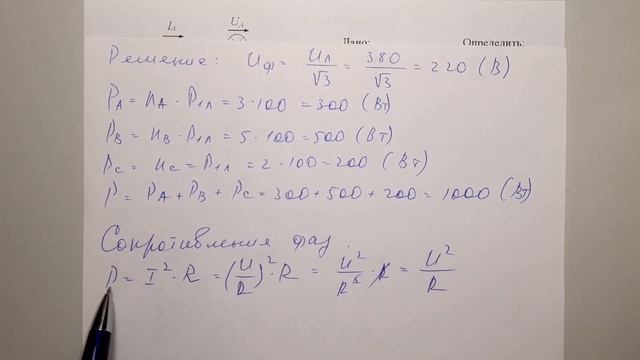 I_A U_A
Дано: Определить:
Решение: Uф = Uл/√3 = 380/√3 = 220 (В)
P_A = n_A · P_1л = 3 · 100 = 300 (Вт)
P_B = n_B · P_1л = 5 · 100 = 500 (Вт)
P_C = n_C = P_1л = 2 · 100 = 200 (Вт)
P = P_A + P_B + P_C = 300 + 500 + 200 = 1000 (Вт)
Сопротивления фаз
P = I² · R = (U/R)² · R = U²/R² · R = U²/R